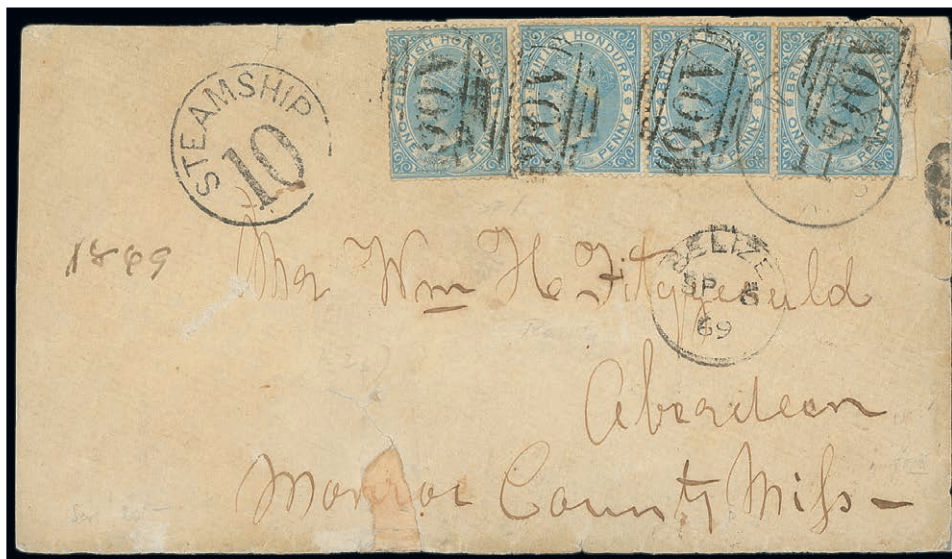 STEAMSHIP
10
BRITISH HONDURAS
ONE PENNY
A06
BRITISH HONDURAS
PENNY
A06
BRITISH HONDURAS
ONE PENNY
A06
BRITISH HONDURAS
ONE PENNY
A06
11
1869
Mr Wm H Fitzgerald
BELIZE
SP 5
69
Aberdeen
Monroe County Miss —